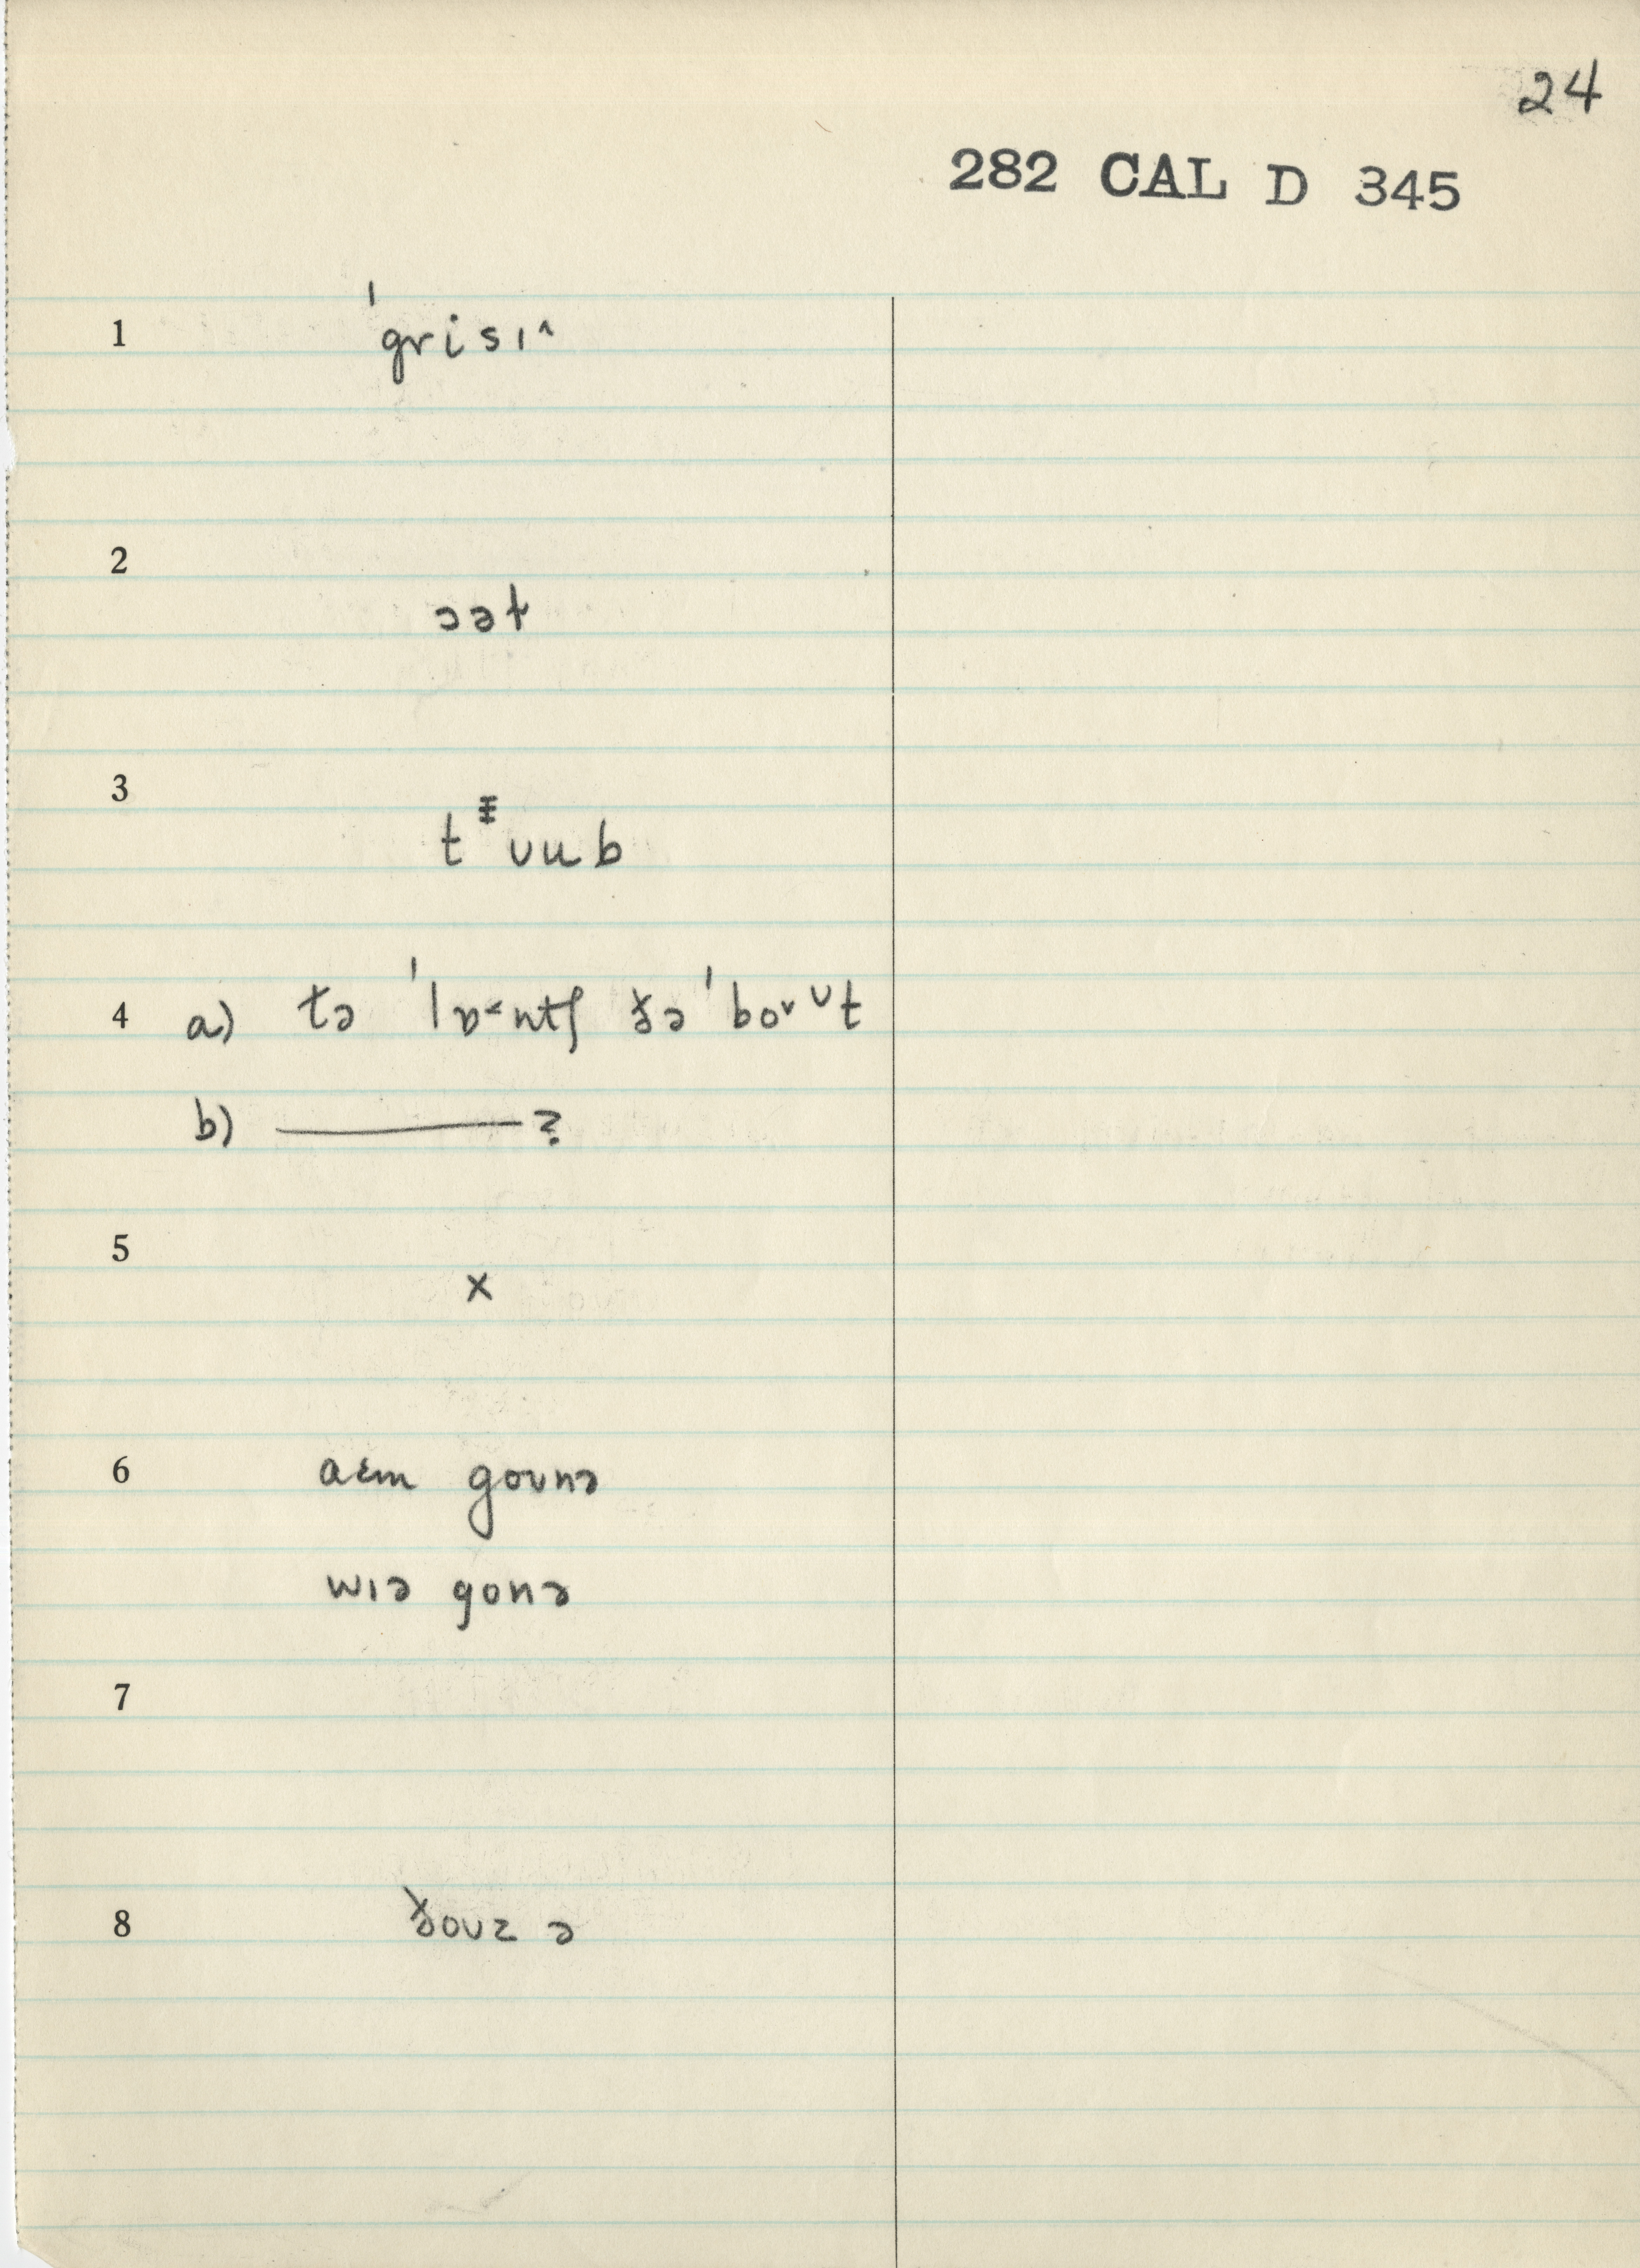 24
282 CAL D 345
1 ˈgrisɪ^
2 ɔət
3 t ʊub
4 a) tə ˈlɒ˂ntʃ ðə ˈbo˅ᶷt
b) ———?
5 x
6 aɛm goʊnə
wɪə gonə
7
8 ðoʊz ə